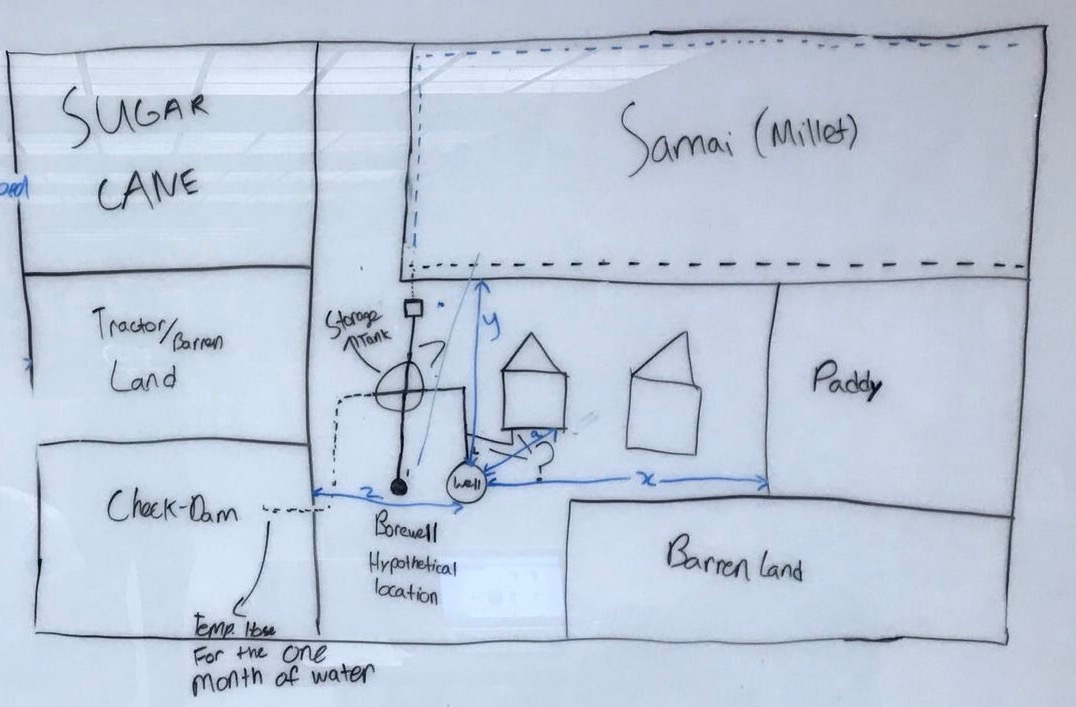 SUGAR
CANE
Samai (Millet)
Tractor/Barren
Land
Storage
Tank
?
y
Paddy
a
?
well
x
z
Check-Dam
Borewell
Hypothetical
location
Barren land
Temp. Hose
For the one
month of water